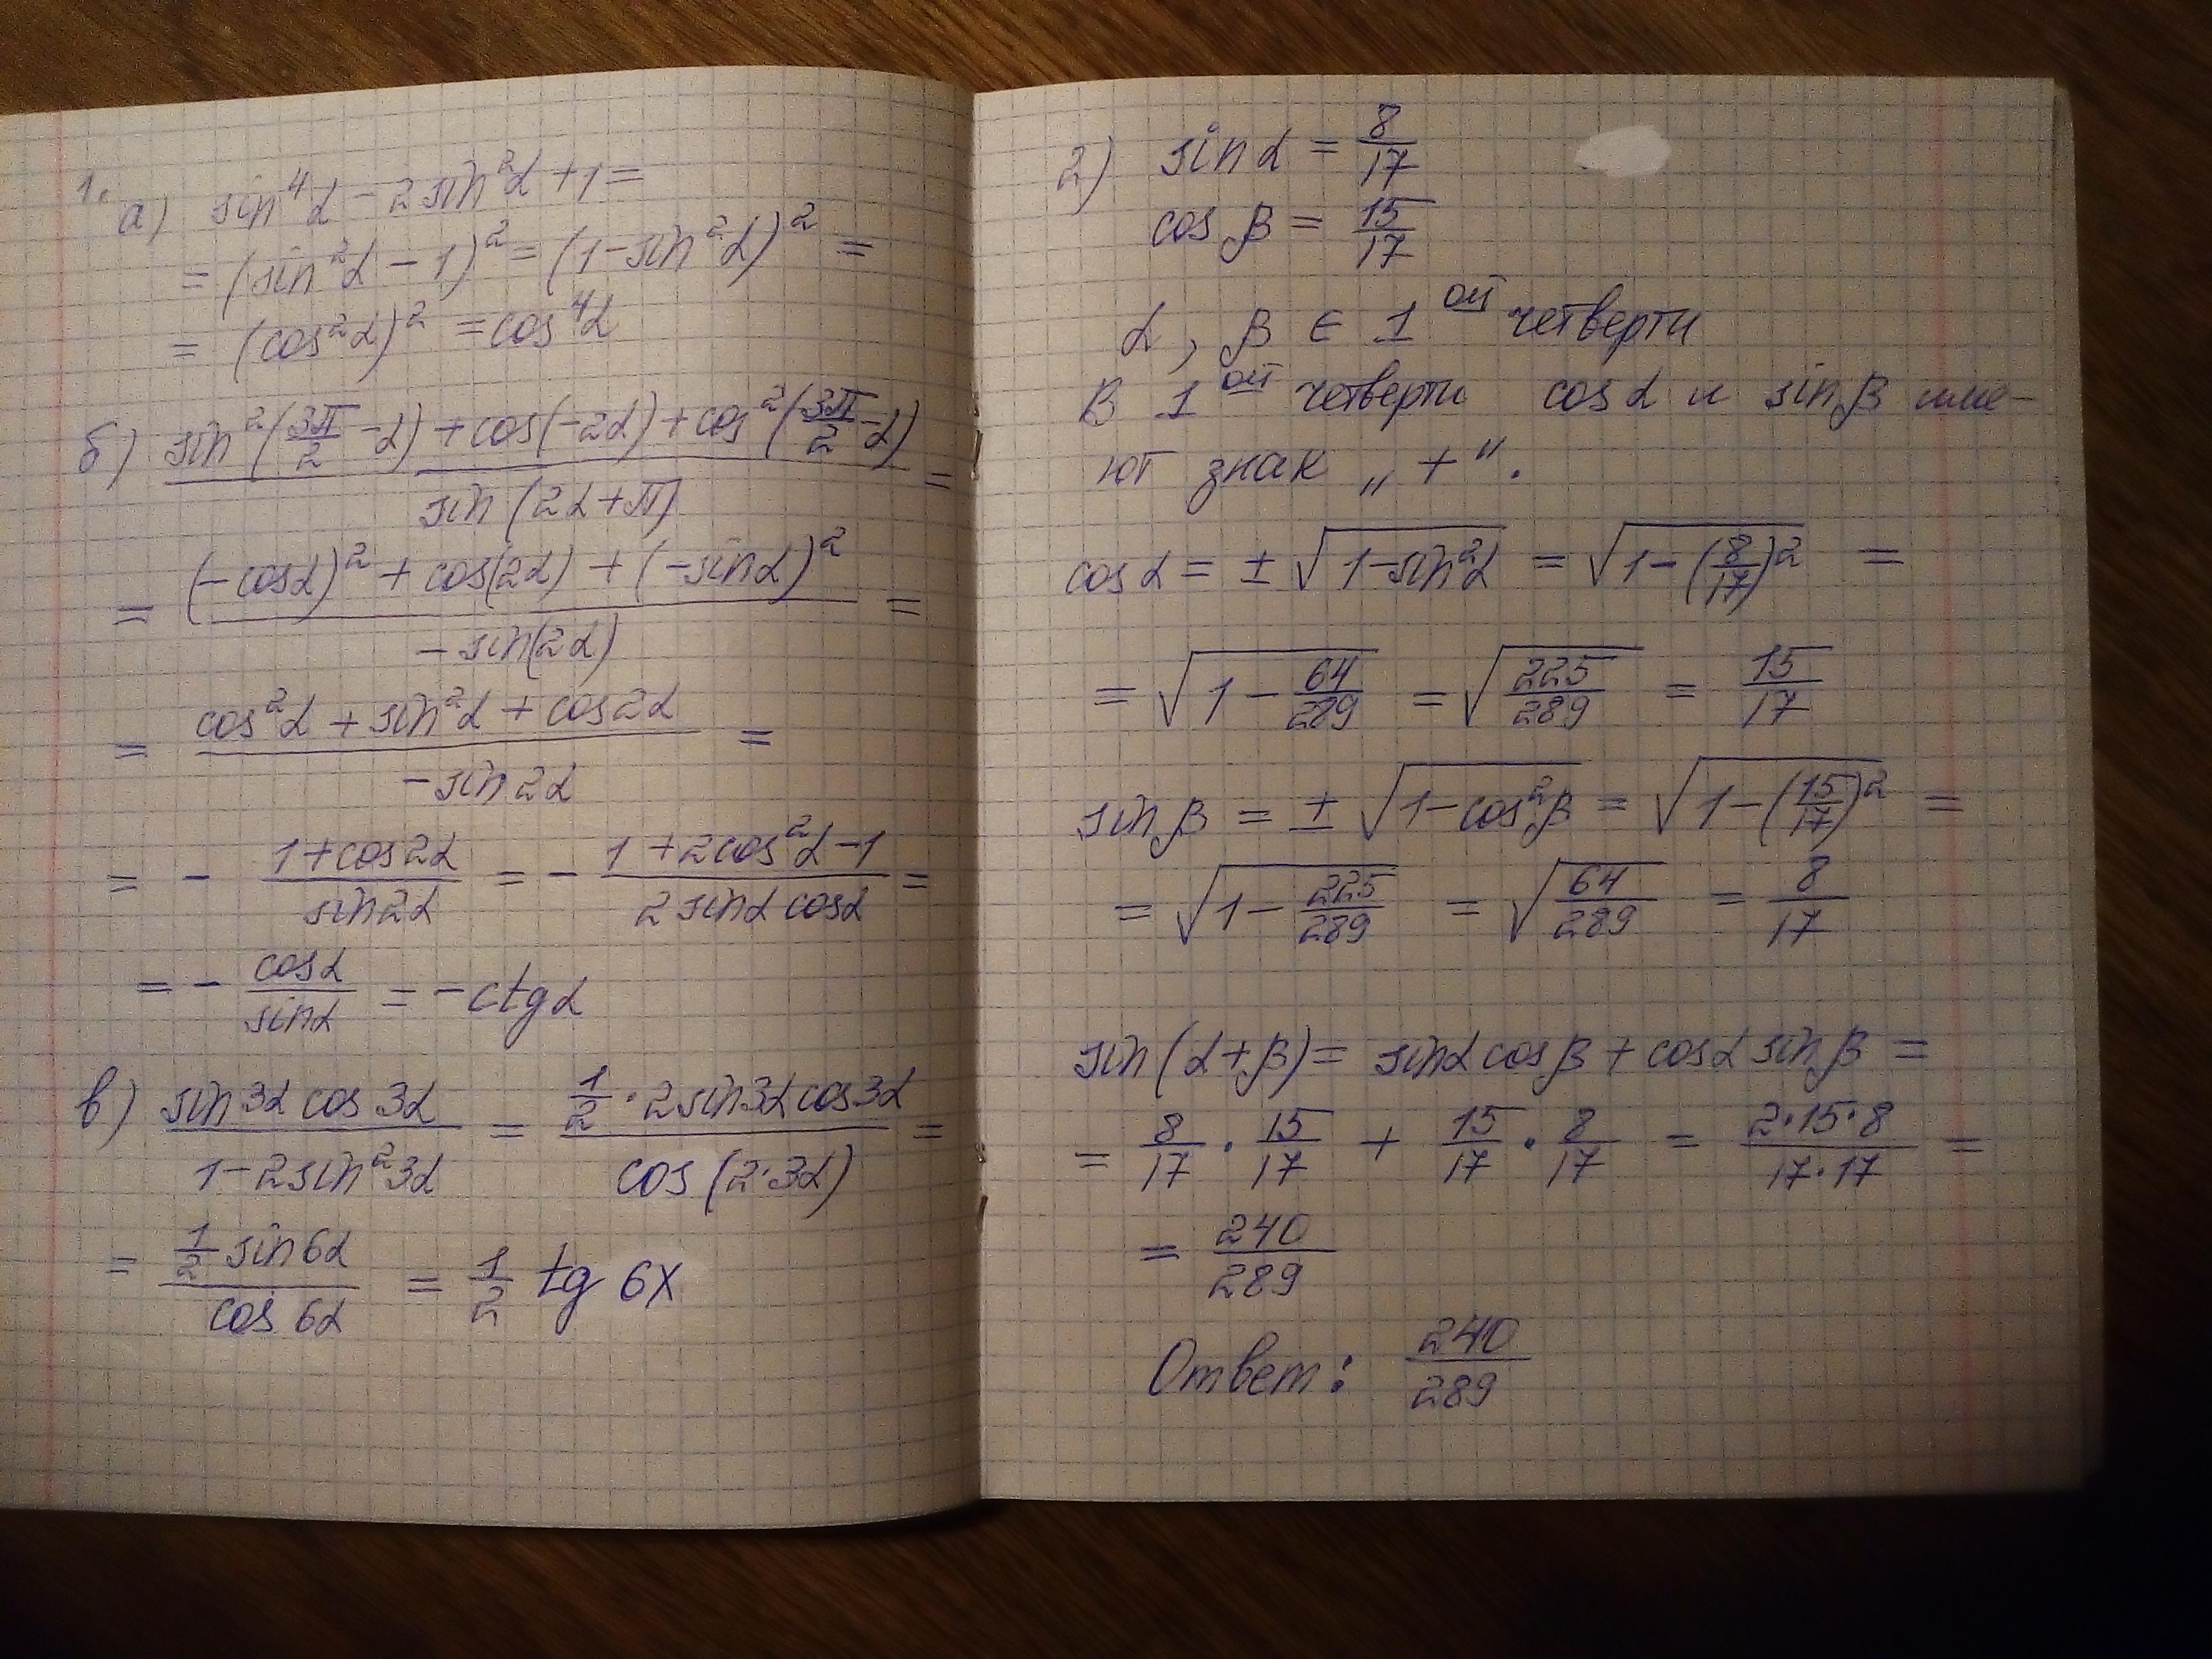 1.
а) sin⁴α − 2sin²α + 1 =
= (sin²α − 1)² = (1 − sin²α)² =
= (cos²α)² = cos⁴α
б) (sin²(3π/2 − α) + cos(−2α) + cos²(3π/2 − α)) / sin(2α + π) =
= ((−cosα)² + cos(2α) + (−sinα)²) / −sin(2α) =
= (cos²α + sin²α + cos2α) / −sin2α =
= − (1 + cos2α) / sin2α = − (1 + 2cos²α − 1) / 2sinα cosα =
= − cosα / sinα = −ctgα
в) sin3α cos3α / (1 − 2sin²3α) = (1/2 · 2sin3α cos3α) / cos(2·3α) =
= (1/2 sin6α) / cos6α = 1/2 tg 6x
2) sinα = 8/17
cosβ = 15/17
α, β ∈ 1ой четверти
В 1ой четверти cosα и sinβ име-
ют знак „+“.
cosα = ±√(1 − sin²α) = √(1 − (8/17)²) =
= √(1 − 64/289) = √(225/289) = 15/17
sinβ = ±√(1 − cos²β) = √(1 − (15/17)²) =
= √(1 − 225/289) = √(64/289) = 8/17
sin(α + β) = sinα cosβ + cosα sinβ =
= 8/17 · 15/17 + 15/17 · 8/17 = 2·15·8 / 17·17 =
= 240/289
Ответ: 240/289